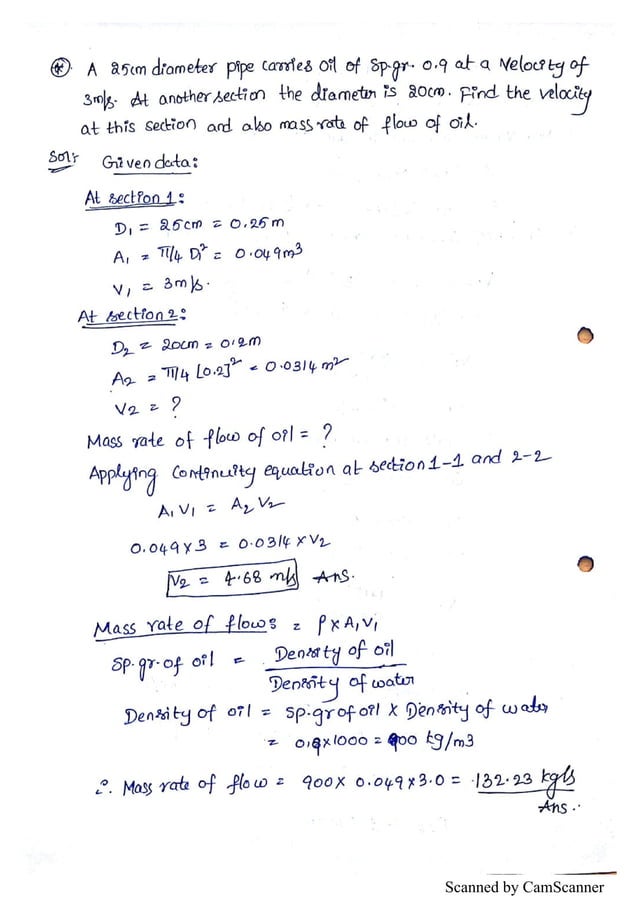 (*) A 25cm diameter pipe carries oil of Sp.gr. 0.9 at a velocity of
3m/s. At another section the diameter is 20cm. Find the velocity
at this section and also mass rate of flow of oil.
Solr Given data:
At section 1:
D₁ = 25cm = 0.25m
A₁ = π/4 D₁² = 0.049m³
V₁ = 3m/s.
At section 2:
D₂ = 20cm = 0.2m
A₂ = π/4 [0.2]² = 0.0314 m²
V₂ = ?
Mass rate of flow of oil = ?
Applying Continuity equation at section 1-1 and 2-2
A₁V₁ = A₂V₂
0.049x3 = 0.0314 x V₂
V₂ = 4.68 m/s Ans.
Mass rate of flow: = ρ x A₁V₁
Sp.gr.of oil = Density of oil
Density of water
Density of oil = sp.gr of oil x Density of water
= 0.9x1000 = 900 kg/m3
∴ Mass rate of flow = 900x 0.049x3.0 = 132.23 kg/s
Ans..
Scanned by CamScanner